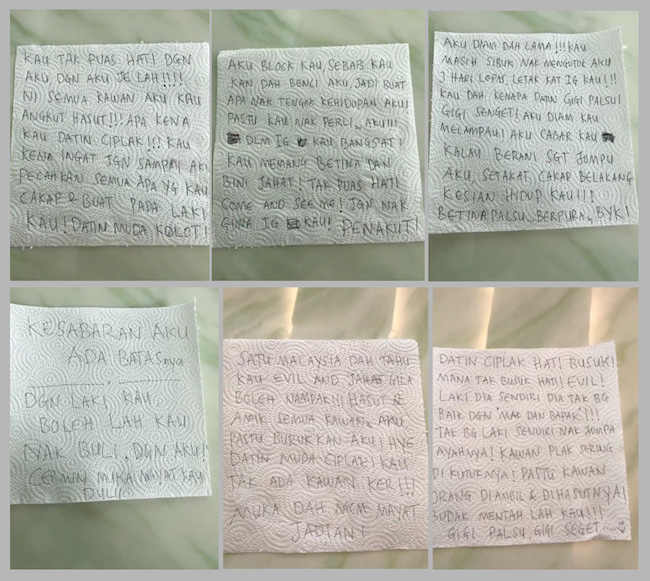 KAU TAK PUAS HATI DGN
AKU DGN AKU JE LAH!!!!
NI SEMUA KAWAN AKU KAU
ANGKUT HASUT!!! APA KENA
KAU DATIN CIPLAK!!! KAU
KENA INGAT JGN SAMPAI AKU
PECAHKAN SEMUA APA YG KAU
CAKAP & BUAT PADA LAKI
KAU! DATIN MUDA KOLOT!
AKU BLOCK KAU, SEBAB KAU
KAN DAH BENCI AKU, JADI BUAT
APA NAK TENGOK KEHIDUPAN AKU!
PASTU KAU NAK PERLI, AKU!!!
DLM IG KAU, BANGSAT!
KAU MEMANG BETINA DAN
BINI JAHAT! TAK PUAS HATI
COME AND SEE ME! JGN NAK
GUNA IG KAU! PENAKUT!
AKU DIAM DAH LAMA!!! KAU
MASIH SIBUK NAK MENGUTUK AKU
3 HARI LEPAS, LETAK KAT IG KAU!!!
KAU DAH KENAPA DATIN GIGI PALSU!
GIGI SENGET! AKU DIAM KAU
MELAMPAU! AKU CABAR KAU
KALAU BERANI SGT JUMPU
AKU, SETAKAT CAKAP BELAKANG
KESIAN HIDUP KAU!!!
BETINA PALSU, BERPURA, BYK!
KESABARAN AKU
ADA BATASnya
DGN LAKI, KAU
BOLEH LAH KAU
NAK BULI, DGN AKU!
CERMIN MUKA MAYAT KAU
DULU
SATU MALAYSIA DAH TAHU
KAU EVIL AND JAHAT GILA
BOLEH NAMPAK!! HASUT &
AMIK SEMUA KAWAN2 AKU
PASTU BURUKKAN AKU! HYE
DATIN MUDA CIPLAK! KAU
TAK ADA KAWAN KER!!!
MUKA DAH MCM MAYAT
JADIAN!
DATIN CIPLAK HATI BUSUK!
MANA TAK BUSUK HATI! EVIL!
LAKI DIA SENDIRI DIA TAK BG
BAIK DGN "MAK DAN BAPAK"!!!
TAK BG LAKI SENDIRI NAK JUMPA
AYAHNYA! KAWAN PLAK SERING
DI KUTUKNYA! PASTU KAWAN
ORANG DIAMBIL & DIHASUTNYA!
BUDAK MENTAH LAH KAU!!!
GIGI PALSU, GIGI SEGET